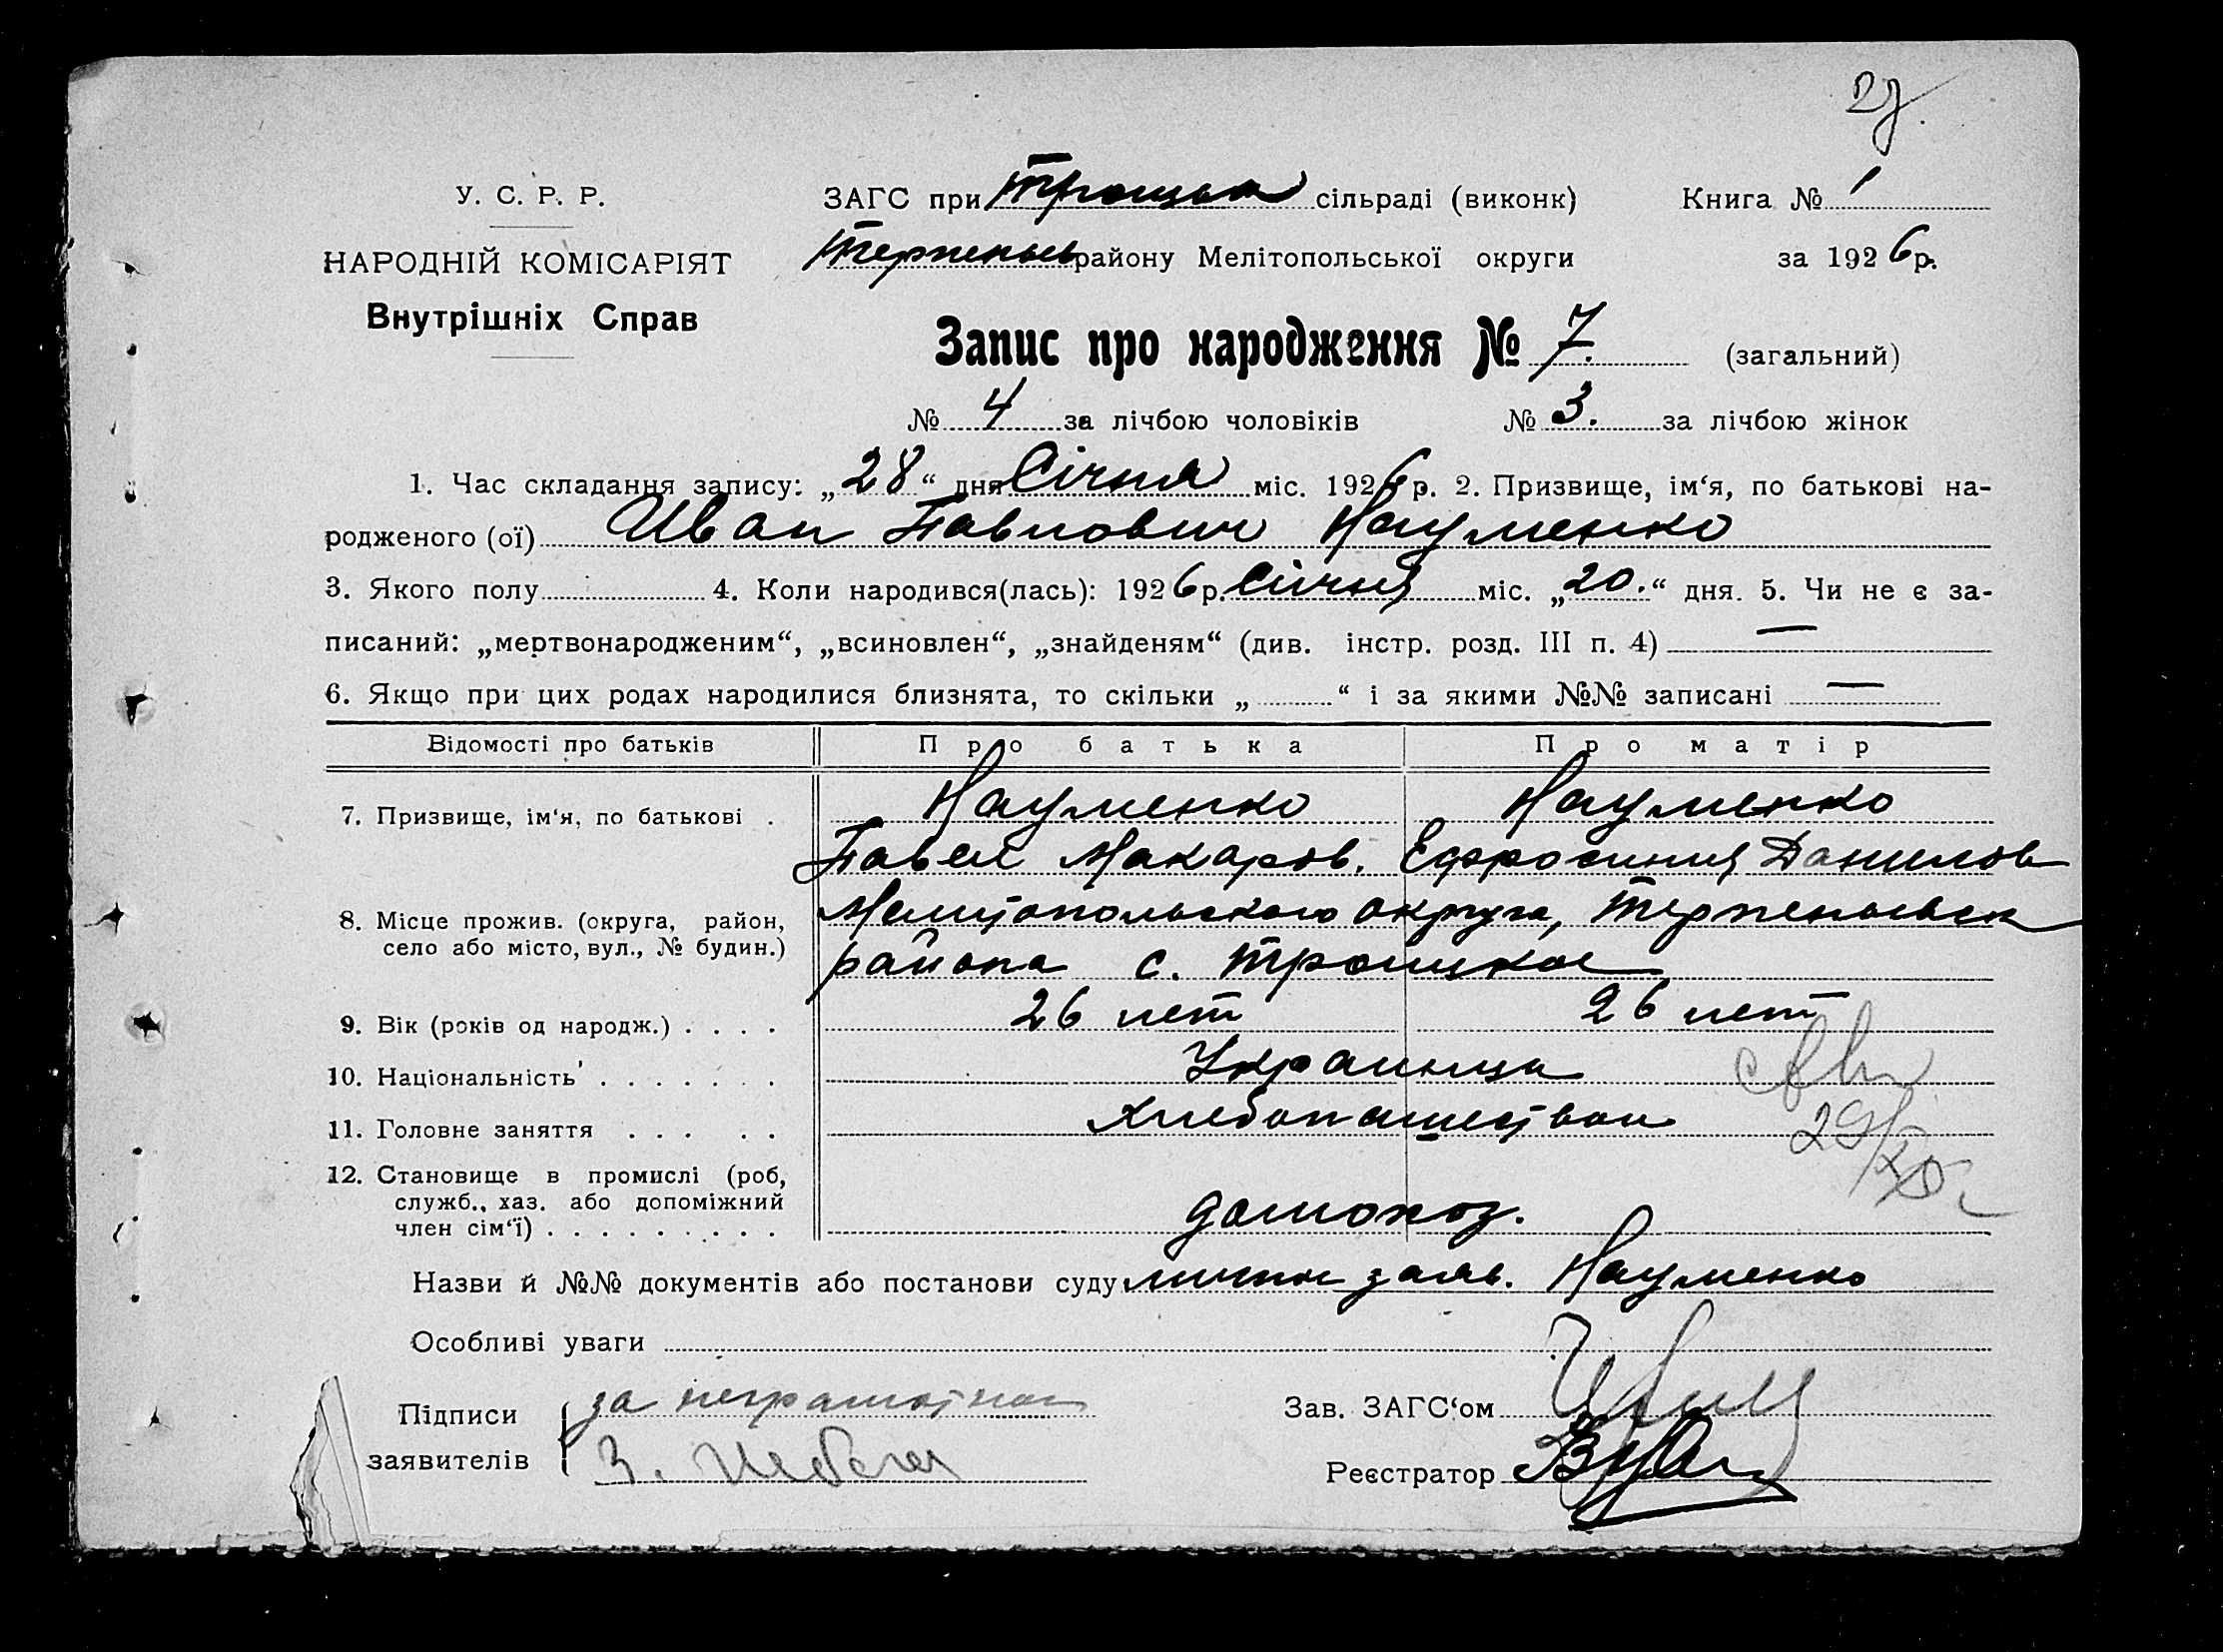 У. С. Р. Р.
НАРОДНІЙ КОМІСАРІЯТ
Внутрішніх Справ
ЗАГС при сільраді (виконк) Книга № 1
району Мелітопольської округи за 1926р.
Запис про народження № 7. (загальний)
№ 4 за лічбою чоловіків № 3. за лічбою жінок
1. Час складання запису: „28“ дня Січня міс. 1926р. 2. Призвище, ім‘я, по батькові на-
родженого (ої) Иван Павлович Науменко
3. Якого полу 4. Коли народився(лась): 1926р. Січня міс. „20.“ дня. 5. Чи не є за-
писаний: „мертвонародженим“, „всиновлен“, „знайденям“ (див. інстр. розд. III п. 4) —
6. Якщо при цих родах народилися близнята, то скільки „ “ і за якими №№ записані —
Відомості про батьків Про батька Про матір
7. Призвище, ім‘я, по батькові . Науменко Науменко
Павел Макаров. Ефросиния Данилов
8. Місце прожив. (округа, район, село або місто, вул., № будин.) Мелитопольского округа, Терпеньевск
района с. Троицкое
9. Вік (років од народж.) . . . . 26 лет 26 лет
10. Національність . . . . . . . Украинцы
11. Головне заняття . . . . . Хлебопашеством
12. Становище в промислі (роб, служб., хаз. або допоміжний член сім‘ї) . . . . . . . . . домохоз.
Назви й №№ документів або постанови суду личное заяв. Науменко
Особливі уваги
Підписи заявителів за неграмотного
Зав. ЗАГС‘ом
Реєстратор